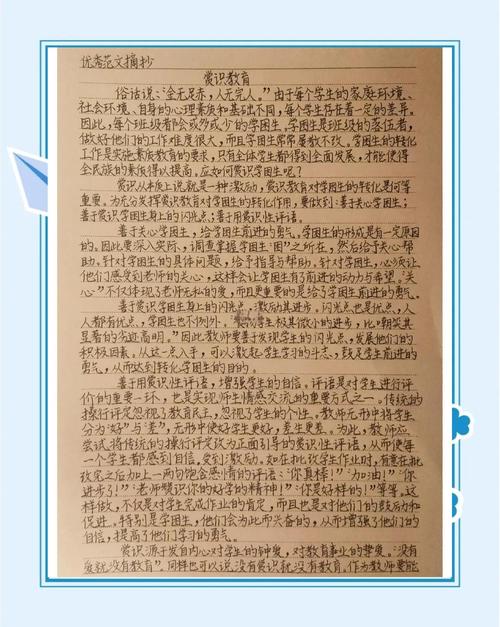 优秀范文摘抄
赏识教育
俗话说：“金无足赤，人无完人。”由于每个学生的家庭环境、
社会环境、自身的心理素质和基础不同，每个学生存在着一定的差异。
因此，每个班级都会或多或少的学困生。学困生是班级的落伍者，
做好他们的工作难度很大，而且学困生常常屡教不改。学困生的转化
工作是实施素质教育的要求，只有全体学生都得到全面发展，才能使得
全民族的素质得以提高。应如何赏识学困生呢？
赏识从本质上说就是一种激励，赏识教育对学困生的转化是何等
重要。为充分发挥赏识教育对学困生的转化作用，要做到：善于关心学困生；
善于赏识学困生身上的闪光点；善于用赏识性评语。
善于关心学困生，给学困生前进的勇气。学困生的形成是有一定原因
的。因此要深入实际，调查掌握学困生“困”之所在，然后给予关心帮
助。针对学困生的具体问题，给予指导与帮助。针对学困生，必须让
他们感受到老师的关心，这样会让学困生有了前进的动力与希望。“关
心”不仅体现了老师无私的爱，而且更重要的是给了学困生前进的勇气。
善于赏识学困生身上的闪光点，激励其进步。闪光点也是优点，人
人都有优点，学困生也不例外。“表扬学生极其微小的进步，比嘲笑其
显著的劣迹高明。”因此教师要善于发现学生的闪光点，发展他们的
积极因素。从这一点入手，可以激起学生学习的斗志，鼓足学生前进的
勇气，从而达到转化学困生的目的。
善于用赏识性评语，增强学生的自信。评语是对学生进行评
价的重要一环，也是实现师生情感交流的重要方式之一。传统的
操行评定忽视了教育民主，忽视了学生的个性。教师无形中将学生
分为“好”与“差”，无形中使好学生更好，差生更差。为此，教师应
尝试将传统的操行评定改为正面引导的赏识性评语，从而使每
一个学生都感到自信，受到激励。如在批改学生作业时，有意在批
改完之后加上一两句饱含感情的评语：“你真棒！”“加油！”“你
进步了！”“老师赞识你的好学的精神！”“你是好样的！”等等。这
样做，不仅是对学生完成作业的肯定，而且也是对他们的鼓励和
促进。特别是学困生，他们会为此而兴奋的，从而增强了他们的
自信，提高了他们学习的勇气。
赏识源于发自内心对学生的钟爱，对教育事业的挚爱。“没有
爱就没有教育”，同样也可以说，没有赏识就没有教育。作为教师要能